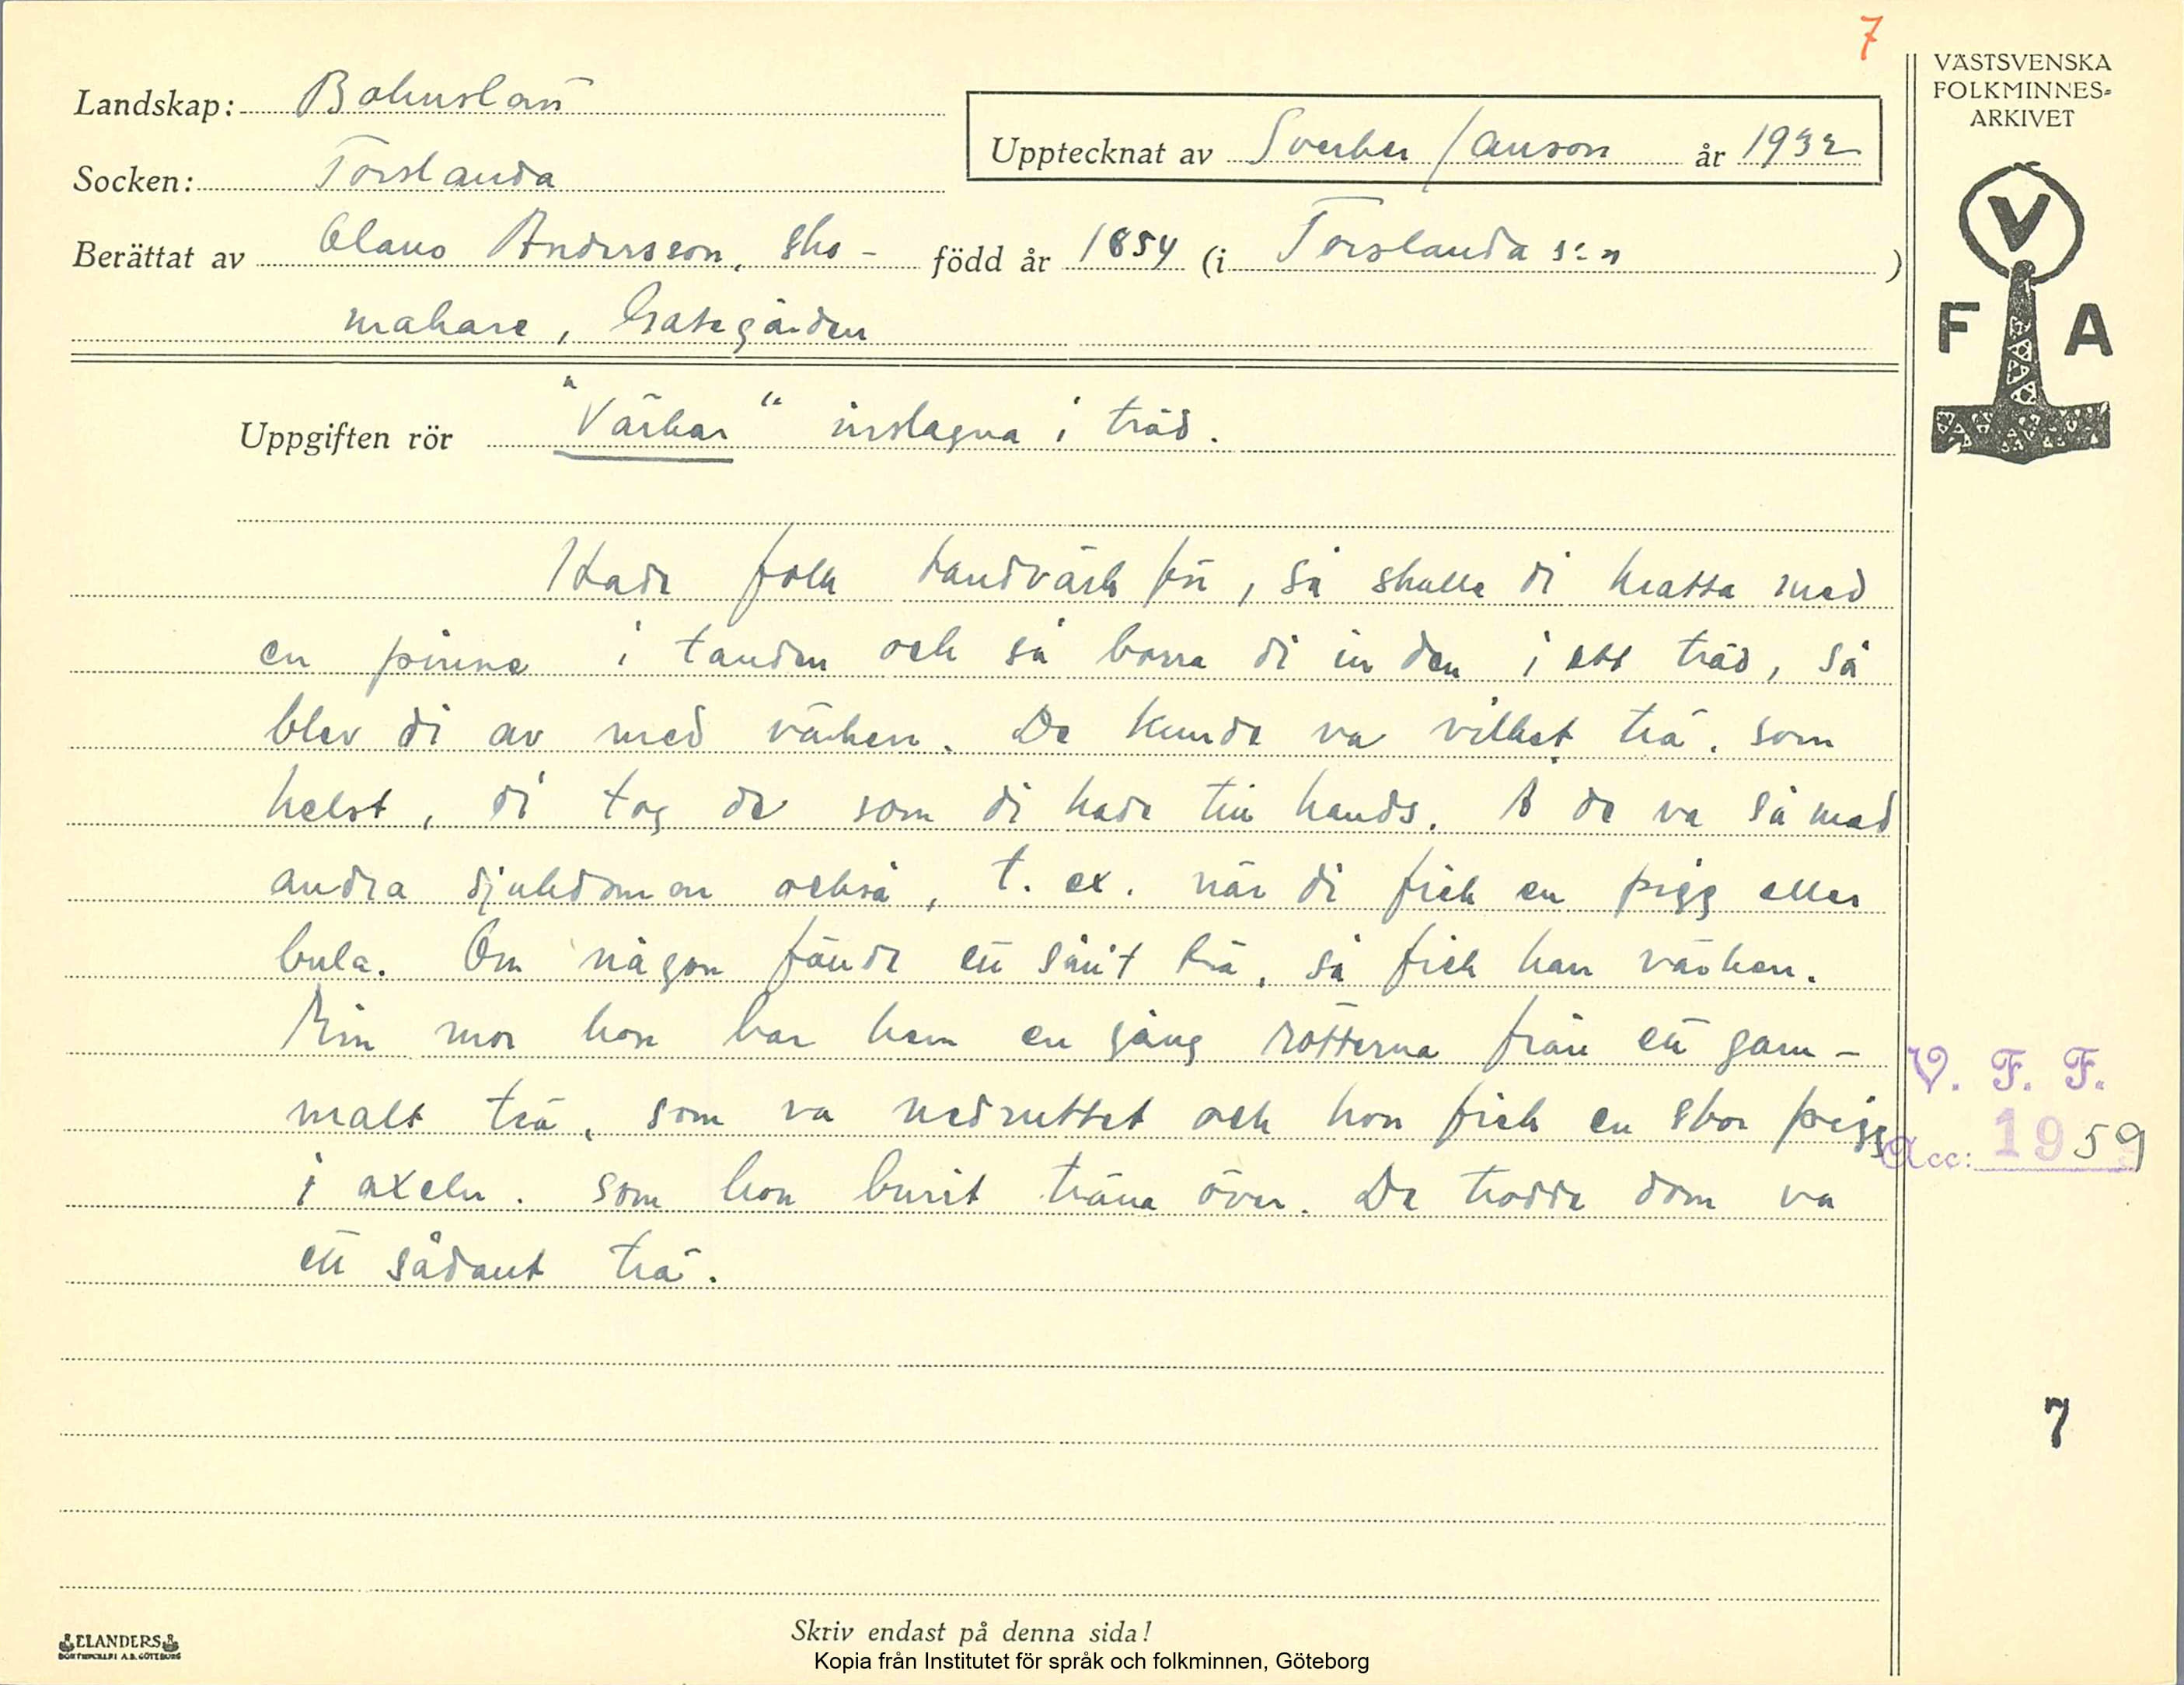 7
VÄSTSVENSKA
FOLKMINNES=
ARKIVET
Landskap: Bohuslän
Upptecknat av Sverker Janson år 1932
Socken: Torslanda
V
F A
Berättat av Claus Andersson, sko- född år 1854 (i Torslanda s:n)
makare, Gategården
Uppgiften rör "Värkar" inslagna i träd.
Hade folk tandvärk för, så skulle di kratta med
en pinne i tanden och så borra di in den i ett träd, så
blev di av med värken. De kunde va vilket trä, som
helst, di tog de som di hade till hands. Å de va så med
andra sjukdomar också, t. ex. när di fick en pigg eller
bula. Om någon fände ett sånt trä, så fick han värken.
Min mor hon bar hem en gång rötterna från ett gam-
malt trä, som va nedruttet och hon fick en stor pigg
i axeln. som hon burit träna över. De trodde dom va
ett sådant trä.
V. F. F.
Acc: 1959
7
ELANDERS
BOKTRYCKERI A.B. GÖTEBORG
Skriv endast på denna sida!
Kopia från Institutet för språk och folkminnen, Göteborg